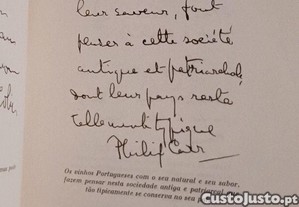 leur saveur, font
penser à cette société
antique et patriarchale
dont leur pays reste
tellement typique
Philip Carr
Os vinhos Portugueses com o seu natural e seu sabor,
fazem pensar nesta sociedade antiga e patriarcal que
tão tipicamente se conserva no seu
CustoJusto.pt